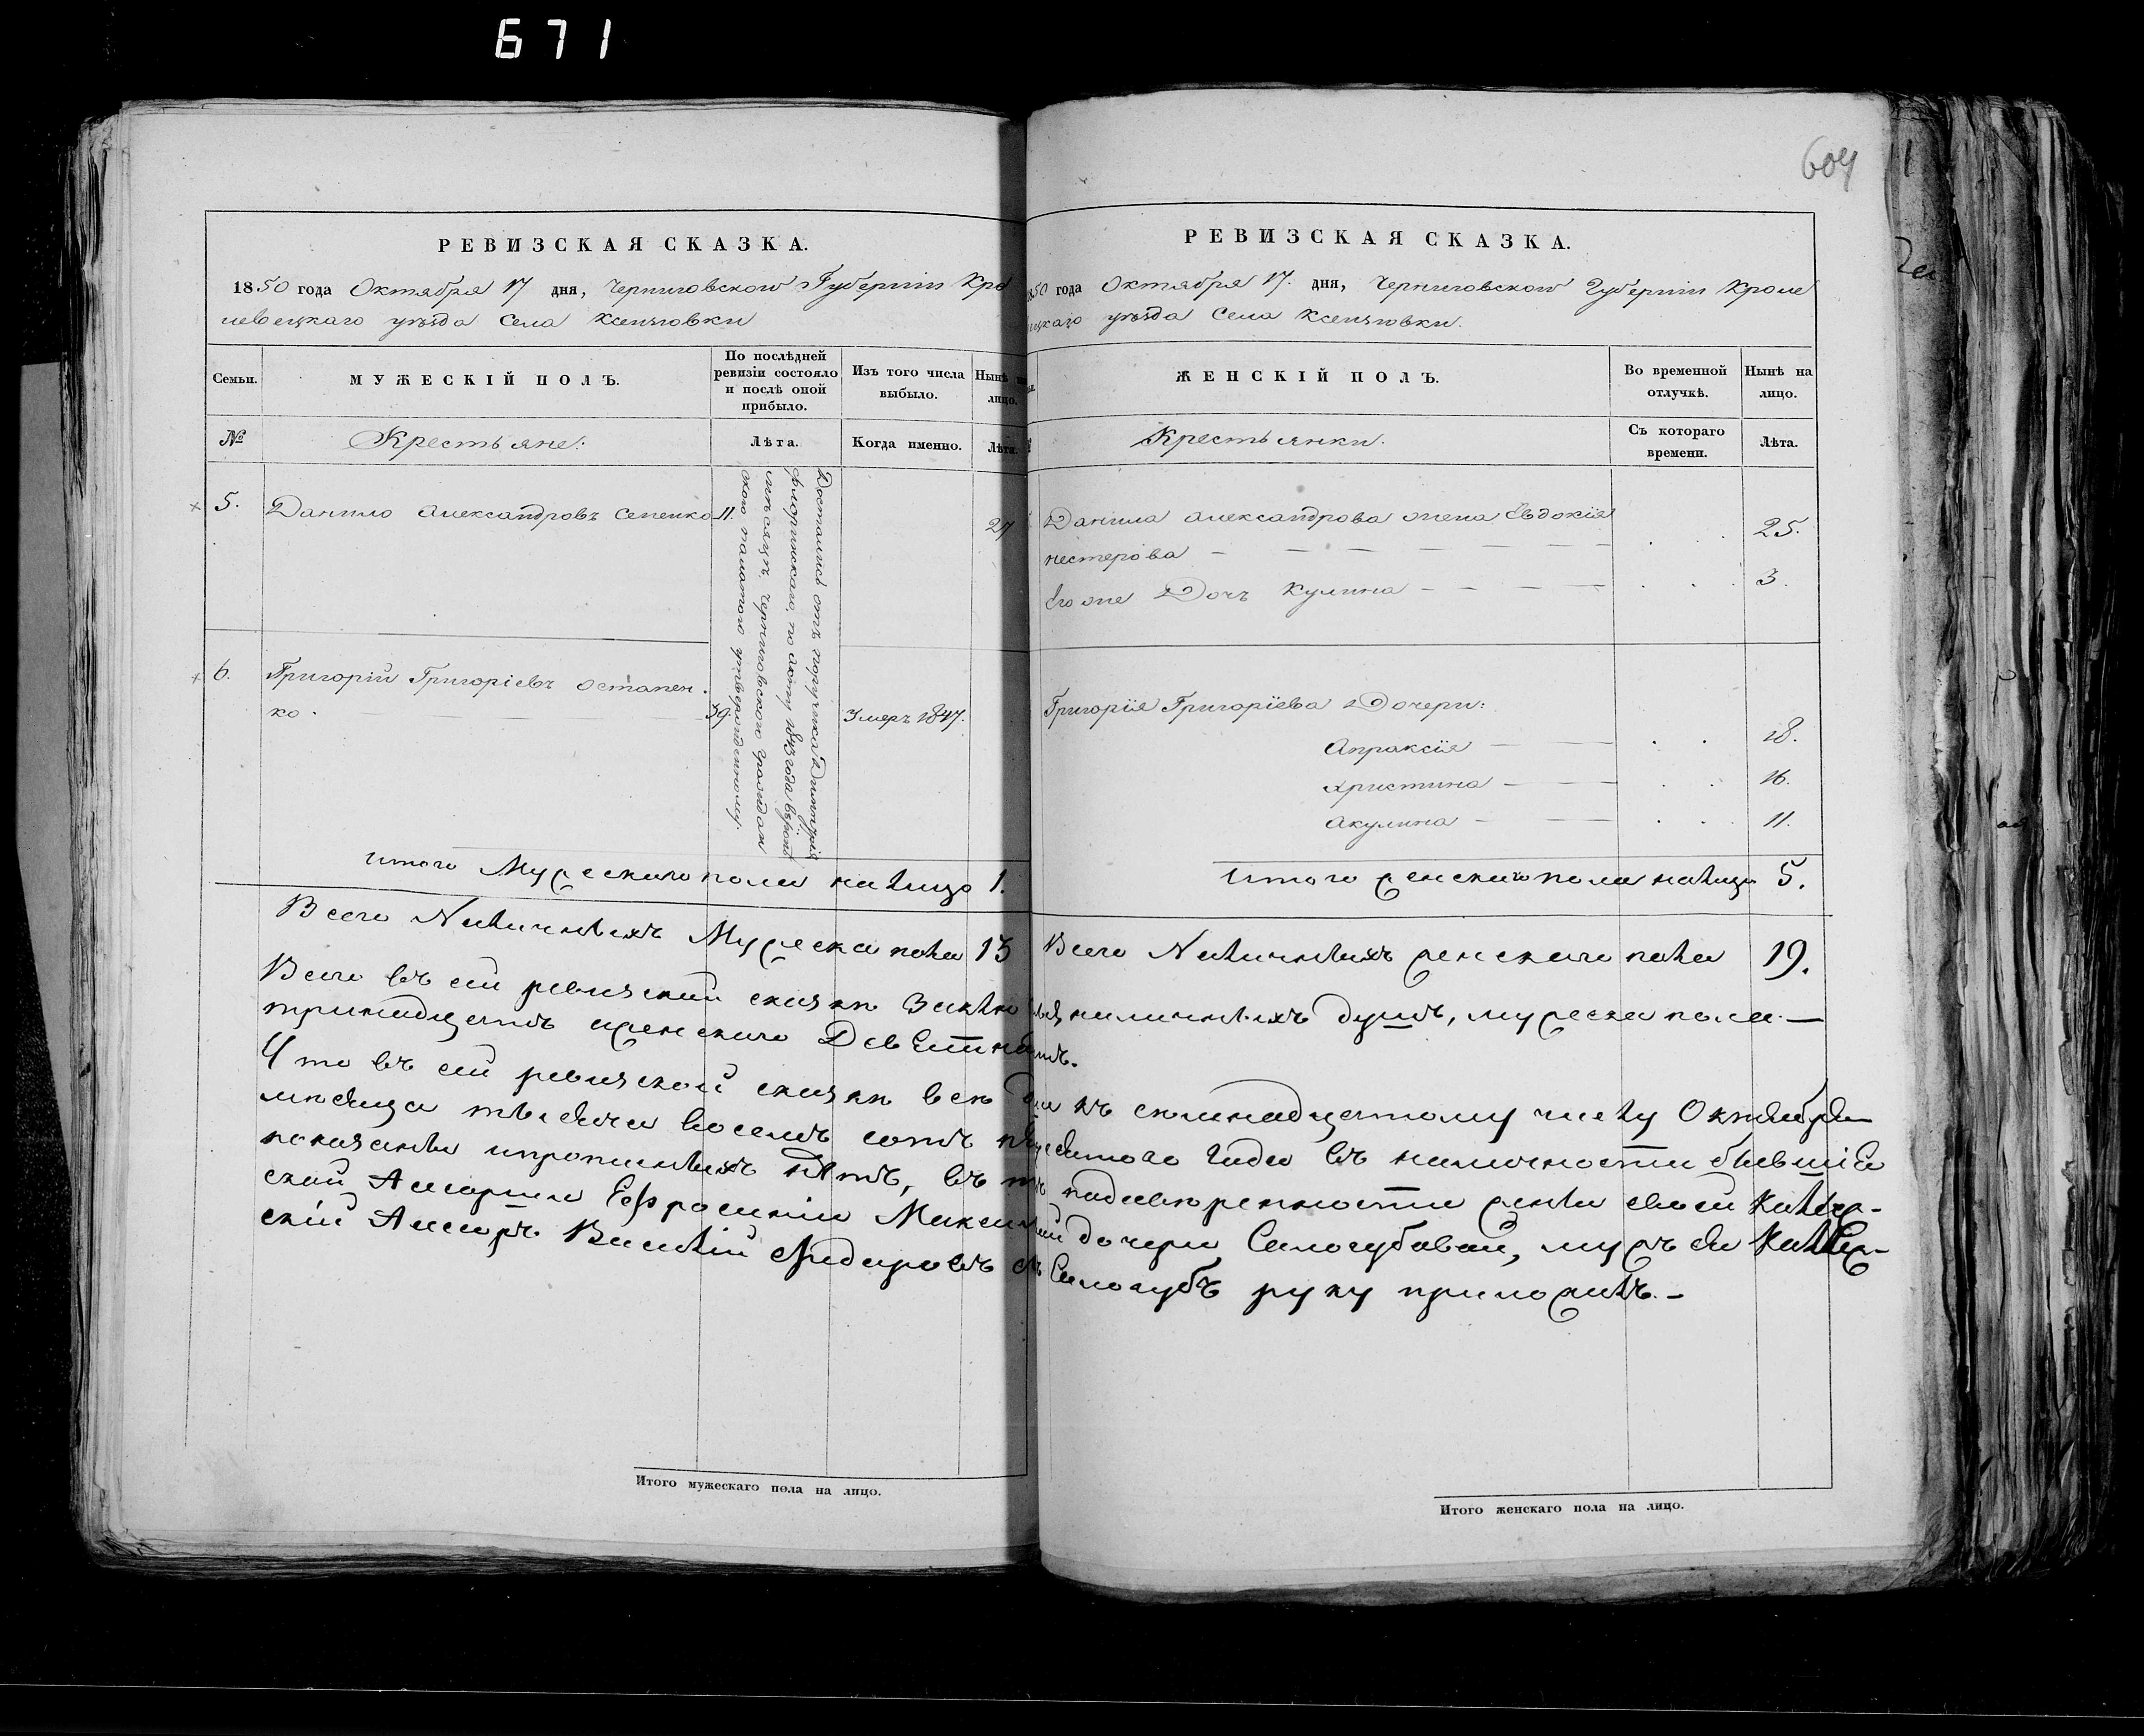 671
604
РЕВИЗСКАЯ СКАЗКА.
1850 года Октября 17 дня, Черниговской Губерніи Кро
левецкаго уѣзда Села Ксензовки
Семьи.
МУЖЕСКІЙ ПОЛЪ.
По послѣдней ревизіи состояло и послѣ оной прибыло.
Изъ того числа выбыло.
Нынѣ на лицо.
№
Крестьяне:
Лѣта.
Когда именно.
Лѣта.
5. Данило Александровъ Сененко 11. 27
6. Григорій Григоріевъ Остапен-
ко. 39. Умеръ 1847.
Достались отъ поручика Димитрія
по акту 1843 года въ іюнѣ
мѣсяцѣ, Черниговскаго граждан
скою палатою утвержденному.
Итого Мужескаго пола на лицо 1.
Всего Наличныхъ Мужеска пола 13
РЕВИЗСКАЯ СКАЗКА.
1850 года Октября 17. дня, Черниговской Губерніи Кроле
вецкаго уѣзда Села Ксензовки.
ЖЕНСКІЙ ПОЛЪ.
Во временной отлучкѣ.
Нынѣ на лицо.
Крестьянки.
Съ котораго времени.
Лѣта.
Данила Александрова жена Евдокія
Нестерова 25.
Его же Дочъ Кулина 3.
Григорія Григоріева Дочери:
Апраксія 18.
Христина 16.
Акулина 11.
Итого женскаго пола на лицо 5.
Всего Наличныхъ женскаго пола 19.
Всего въ сей ревизской сказки Заключается наличныхъ душъ, мужеска пола
тринадцать женскаго Деветнацать.
Что въ сей ревизской сказки всѣ душ къ семьнадцетому числу Октября
мѣсяца тысяча восемь сотъ пятдесятого Года въ наличности бывшіе
показаны и прописныхъ нѣтъ, въ томъ по довѣренности жены своей Коллеж-
ской Ассорши Ефросиніи Максимовой дочери Самогубовой, мужъ ея Коллеж-
скій Ассоръ Василій Фидоровъ сынъ Самогубъ руку приложилъ.
Итого мужескаго пола на лицо.
Итого женскаго пола на лицо.